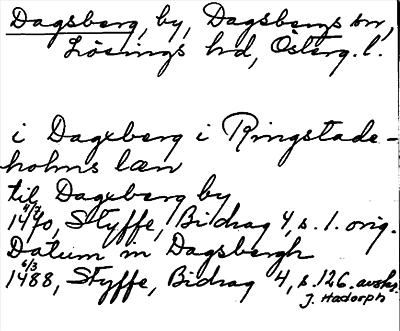 Dagsberg, by, Dagsbergs sn,
Lösings hd, Österg. l.
i Dagxberg i Ringstade-
holms læn
til Dagxberg by
1470, Styffe, Bidrag 4, s. 1. orig.
Datum in Dagsbergh
6/3
1488, Styffe, Bidrag 4, s. 126. avskr.
J. Hadorph